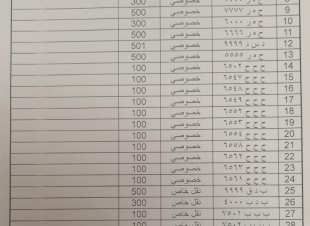 300 خصوصي 8
500 خصوصي ح ه ر ٧٧٧٧ 9
300 خصوصي ح ه ر ٦٠٠٠ 10
500 خصوصي ح ه ر ٦٦٦٦ 11
501 خصوصي د س د ٩٩٩٩ 12
500 خصوصي ح ه ر ٥٥٥٥ 13
100 خصوصي ح ح ح ٦٥٠٢ 14
100 خصوصي ح ح ح ٦٥٤٧ 15
100 خصوصي ح ح ح ٦٥٤٨ 16
100 خصوصي ح ح ح ٦٥٤٩ 17
100 خصوصي ح ح ح ٦٥٥٢ 18
100 خصوصي ح ح ح ٦٥٥٣ 19
100 خصوصي ح ح ح ٦٥٥٤ 20
100 خصوصي ح ح ح ٦٥٥٨ 21
100 خصوصي ح ح ح ٦٥٦٢ 22
100 خصوصي ح ح ح ٦٥٦٣ 23
100 خصوصي ح ح ح ٦٥٦١ 24
500 نقل خاص ب د ق ٩٩٩٩ 25
300 نقل خاص ب د ب ٤٠٠٠ 26
100 نقل خاص ب ب ب ٧٥٠١ 27
100 نقل خاص 28